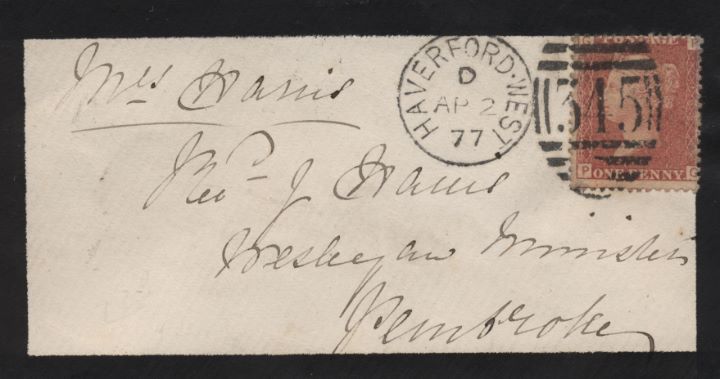 Mrs Harris
Revd J Harris
Wesleyan Minister
Pembroke
HAVERFORD·WEST
D
AP 2
77
315
G P
POSTAGE
P G
ONE PENNY